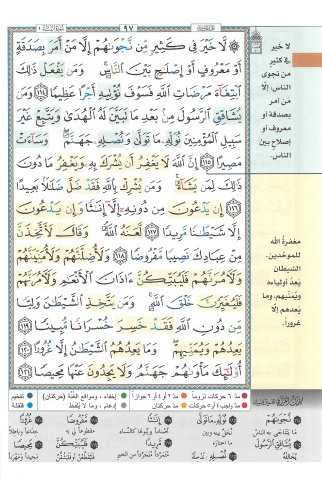 ٩٧
لَّا خَيْرَ فِي كَثِيرٍ مِّن نَّجْوَىٰهُمْ إِلَّا مَنْ أَمَرَ بِصَدَقَةٍ
أَوْ مَعْرُوفٍ أَوْ إِصْلَٰحٍۭ بَيْنَ ٱلنَّاسِۚ وَمَن يَفْعَلْ ذَٰلِكَ
ٱبْتِغَآءَ مَرْضَاتِ ٱللَّهِ فَسَوْفَ نُؤْتِيهِ أَجْرًا عَظِيمًا ١١٤ وَمَن
يُشَاقِقِ ٱلرَّسُولَ مِنۢ بَعْدِ مَا تَبَيَّنَ لَهُ ٱلْهُدَىٰ وَيَتَّبِعْ غَيْرَ
سَبِيلِ ٱلْمُؤْمِنِينَ نُوَلِّهِۦ مَا تَوَلَّىٰ وَنُصْلِهِۦ جَهَنَّمَۖ وَسَآءَتْ
مَصِيرًا ١١٥ إِنَّ ٱللَّهَ لَا يَغْفِرُ أَن يُشْرَكَ بِهِۦ وَيَغْفِرُ مَا دُونَ
ذَٰلِكَ لِمَن يَشَآءُۚ وَمَن يُشْرِكْ بِٱللَّهِ فَقَدْ ضَلَّ ضَلَٰلًۢا بَعِيدًا
١١٦ إِن يَدْعُونَ مِن دُونِهِۦٓ إِلَّآ إِنَٰثًا وَإِن يَدْعُونَ
إِلَّا شَيْطَٰنًا مَّرِيدًا ١١٧ لَّعَنَهُ ٱللَّهُۘ وَقَالَ لَأَتَّخِذَنَّ
مِنْ عِبَادِكَ نَصِيبًا مَّفْرُوضًا ١١٨ وَلَأُضِلَّنَّهُمْ وَلَأُمَنِّيَنَّهُمْ
وَلَءَامُرَنَّهُمْ فَلَيُبَتِّكُنَّ ءَاذَانَ ٱلْأَنْعَٰمِ وَلَءَامُرَنَّهُمْ
فَلَيُغَيِّرُنَّ خَلْقَ ٱللَّهِۚ وَمَن يَتَّخِذِ ٱلشَّيْطَٰنَ وَلِيًّا
مِّن دُونِ ٱللَّهِ فَقَدْ خَسِرَ خُسْرَانًا مُّبِينًا ١١٩
يَعِدُهُمْ وَيُمَنِّيهِمْۖ وَمَا يَعِدُهُمُ ٱلشَّيْطَٰنُ إِلَّا غُرُورًا ١٢٠
أُو۟لَٰٓئِكَ مَأْوَىٰهُمْ جَهَنَّمُ وَلَا يَجِدُونَ عَنْهَا مَحِيصًا ١٢١
لا خير
في كثير
من نجوى
الناس، إلا
من أمر
بصدقة أو
معروف أو
إصلاح بين
الناس.
مغفرة الله
للموحدين.
الشيطان
يعد أولياءه
ويمنيهم، وما
يعدهم إلا
غروراً.
مدّ ٦ حركات لزوماً
مدّ ٢ أو ٤ أو ٦ جوازاً
إخفاء، ومواقع الغُنَّة (حركتان)
تفخيم
مدّ واجب ٤ أو ٥ حركات
مدّ حركتان
إدغام، وما لا يُلفَظ
قلقلة